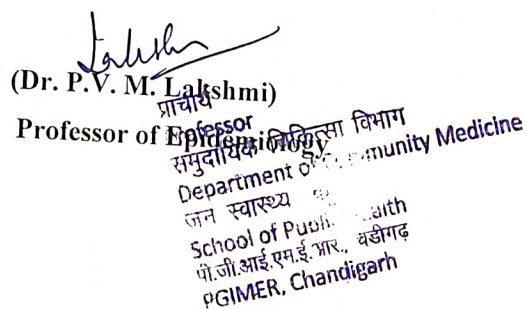 Lakshmi
(Dr. P.V. M. Lakshmi)
Professor of Epidemiology
प्राचार्य
Professor
समुदायिक चिकित्सा विभाग
Department of Community Medicine
जन स्वास्थ्य
School of Public Health
पी.जी.आई.एम.ई.आर., चंडीगढ़
PGIMER, Chandigarh